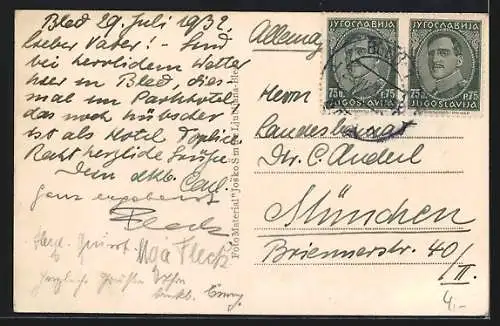 Bled 29. Juli 1932.
Lieber Vater! – Sind
bei herrlichem Wetter
hier in Bled, dies-
mal im Parkhotel,
das noch hübscher
ist als Hotel Toplice.
Recht herzliche Grüsse
Dein dkb. Carl.
Ganz ergebenst
Fleck
Herzl. Gruss Olga Fleck
Herzliche Grüßen
dankb. Emmy
Foto Material "Josko Šmuc" Ljubljana-Bled
ЈУГОСЛАВИЈА ЈУГОСЛАВИЈА
75 P.75 75 P.75
JUGOSLAVIJA JUGOSLAVIJA
BLED
Allemag
Herrn
Dr. C.
München
Briennerstr. 40/
II.
4.-